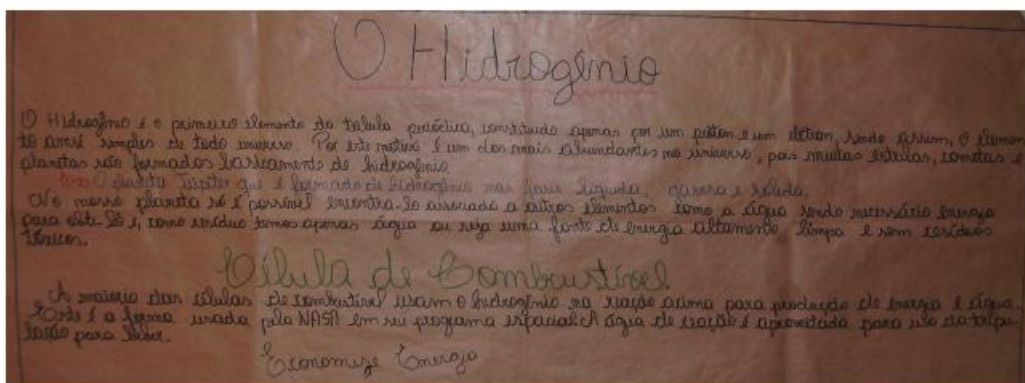 O Hidrogênio
O Hidrogênio é o primeiro elemento da tabela periódica, constituido apenas por um próton e um elétron, sendo assim, o elemen
to mais simples de todo universo. Por este motivo é um dos mais abundantes no universo, pois muitas estrelas, cometas e
planetas são formados basicamente de hidrogênio.
O planeta Júpiter que é formado de hidrogênio nas fases líquida, gasosa e sólida.
No nosso planeta só é possível encontra-lo associado a outros elementos como a água sendo necessário energia
para obte-lo e, como resíduo temos apenas água ou seja uma fonte de energia altamente limpa e sem resíduos
tóxicos.
Célula de Combustível
A maioria das células de combustível usam o hidrogênio na reação acima para produção de energia e água.
Este é a forma usada pela NASA em seu programa espacial. A água de reação é aproveitada para uso da tripu-
lação para beber.
Economize Energia